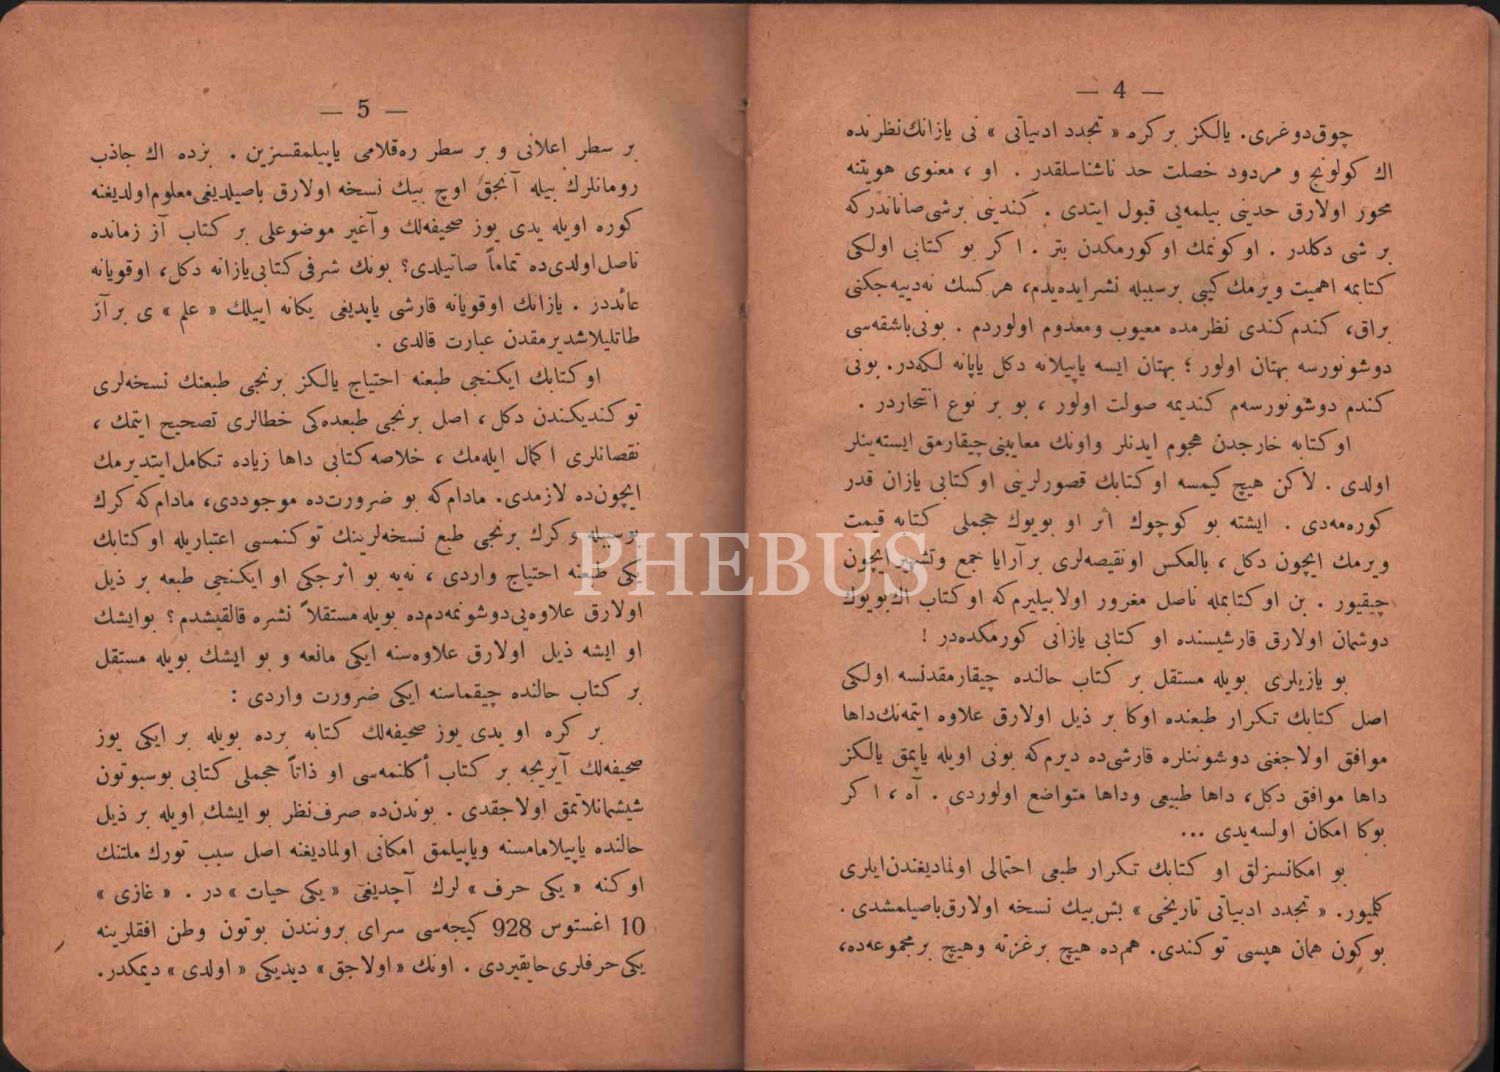 — 4 —
چوق دوغری. یالکز بر کره « تجدد ادبیاتی » نی یازانك نظرنده
اك کولونج و مردود خصلت حد ناشناسلقدر . او ، معنوی هویتنه
محور اولارق حدینی بیلمه‌یی قبول ایتدی . کندینی بر شی صاناندرکه
بر شی دکلدر . اوکونمك اوکورمکدن بتر . اکر بو کتابی اولکی
کتابمه اهمیت ویرمك کیبی بر سببله نشر ایده‌یدم، هرکسك نه دییه‌جکنی
براق، کندم کندی نظرمده معیوب ومعدوم اولوردم . بونی باشقه‌سی
دوشونورسه بهتان اولور ؛ بهتان ایسه یاپیلانه دکل یاپانه لکه‌در. بونی
کندم دوشونورسه‌م کندیمه صولت اولور ، بو بر نوع انتحاردر .
او کتابه خارجدن هجوم ایدنلر واونك معایبنی چیقارمق ایسته‌ینلر
اولدی . لاکن هیچ کیمسه او کتابك قصورلرینی او کتابی یازان قدر
کوره‌مه‌دی . ایشته بو کوچوك اثر او بویوك حجملی کتابه قیمت
ویرمك ایچون دکل ، بالعکس او نقیصه‌لری بر آرایا جمع وتشهیر ایچون
چیقیور . بن او کتابمله ناصل مغرور اولابیلیرم که او کتاب اك بویوك
دوشمان اولارق قارشیسنده او کتابی یازانی کورمکده‌در !
بو یازیلری بویله مستقل بر کتاب حالنده چیقارمقدنسه اولکی
اصل کتابك تکرار طبعنده اوکا بر ذیل اولارق علاوه ایتمه‌نك داها
موافق اولاجغنی دوشوننلره قارشی ده دیرم که بونی اویله یاپمق یالکز
داها موافق دکل، داها طبیعی وداها متواضع اولوردی . آه ، اکر
بوکا امکان اولسه‌یدی ...
بو امکانسزلق او کتابك تکرار طبعی احتمالی اولمادیغندن ایلری
کلمیور. « تجدد ادبیاتی تاریخی » بش بیك نسخه اولارق باصیلمشدی .
بوکون همان هپسی توکندی. هم ده هیچ بر غزته وهیچ بر مجموعه‌ده،
— 5 —
بر سطر اعلانی و بر سطر ره‌قلامی یاپیلمقسزین . بزده اك جاذب
رومانلرك بیله آنجق اوچ بیك نسخه اولارق باصیلدیغی معلوم اولدیغنه
کوره اویله یدی یوز صحیفه‌لك و آغیر موضوعلی بر کتاب آز زمانده
ناصل اولدی ده تماماً صاتیلدی؟ بونك شرفی کتابی یازانه دکل، اوقویانه
عائددر . یازانك اوقویانه قارشی یاپدیغی یکانه اییلك « علم » ی بر آز
طاتلیلاشدیرمقدن عبارت قالدی .
او کتابك ایکنجی طبعنه احتیاج یالکز برنجی طبعنك نسخه‌لری
توکندیکندن دکل ، اصل برنجی طبعده‌کی خطالری تصحیح ایتمك ،
نقصانلری اکمال ایله‌مك ، خلاصه کتابی داها زیاده تکامل ایتدیرمك
ایچون ده لازمدی. مادام که بو ضرورت ده موجوددی، مادام که کرك
بو سبیله و کرك برنجی طبع نسخه‌لرینك توکنمسی اعتباریله او کتابك
یکی طبعنه احتیاج واردی ، نه‌یه بو اثرجکی او ایکنجی طبعه بر ذیل
اولارق علاوه‌یی دوشونمه‌دم ده بویله مستقلاً نشره قالقیشدم ؟ بو ایشك
او ایشه ذیل اولارق علاوه‌سنه ایکی مانعه و بو ایشك بویله مستقل
بر کتاب حالنده چیقماسنه ایکی ضرورت واردی :
بر کره او یدی یوز صحیفه‌لك کتابه برده بویله بر ایکی یوز
صحیفه‌لك آیریجه بر کتاب أکلنمه‌سی او ذاتاً حجملی کتابی بوسبوتون
شیشمانلاتمق اولاجقدی . بوندن ده صرف‌نظر بو ایشك اویله بر ذیل
حالنده یاپیلامامسنه ویاپیلمق امکانی اولمادیغنه اصل سبب تورك ملتنك
اوکنه « یکی حرف » لرك آچدیغی « یکی حیات » در . « غازی »
10 اغستوس 928 کیجه‌سی سرای بروننده بوتون وطن افقلرینه
یکی حرفلری حایقیردی . اونك « اولاجق » دیدیکی « اولدی » دیمکدر.
PHEBUS